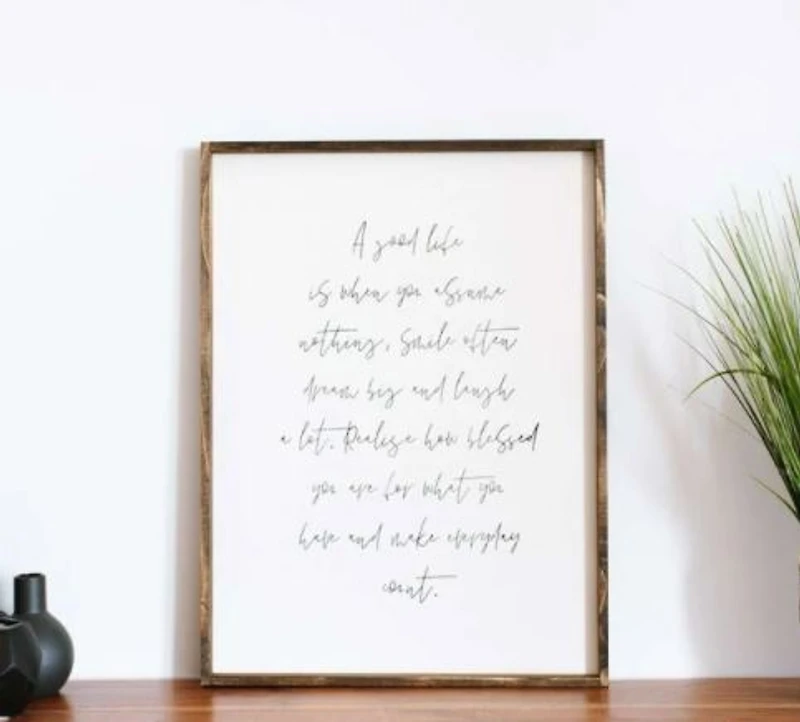 A good life
is when you assume
nothing, Smile often
dream big and laugh
a lot. Realise how blessed
you are for what you
have and make everyday
count.